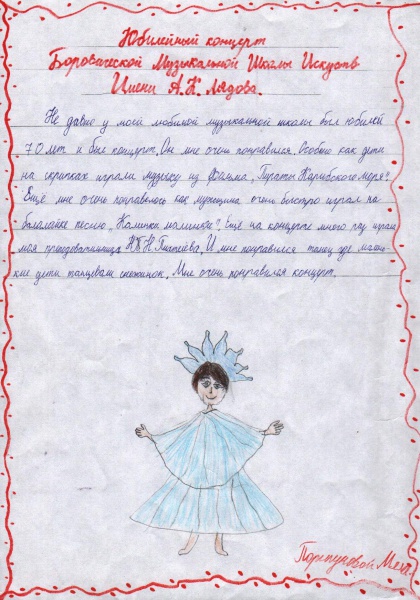 Юбилейный концерт
Боровической Музыкальной Школы Искуств
Имени А.К. Лядова.
Не давно у моей любимой музыкальной школы был юбилей
70 лет и был концерт. Он мне очень понравился. Особно как дети
на скрипках играли музыку из фильма "Пираты Карибского моря".
Ещё мне очень понравилось как мужчина очень быстро играл на
балалайке песню "Калинки малинки". Ещё на концерте много раз играла
моя преподавательница Н.Н.
И мне понравился танец где мале-
кие дети танцевали снежинок. Мне очень понравился концерт.